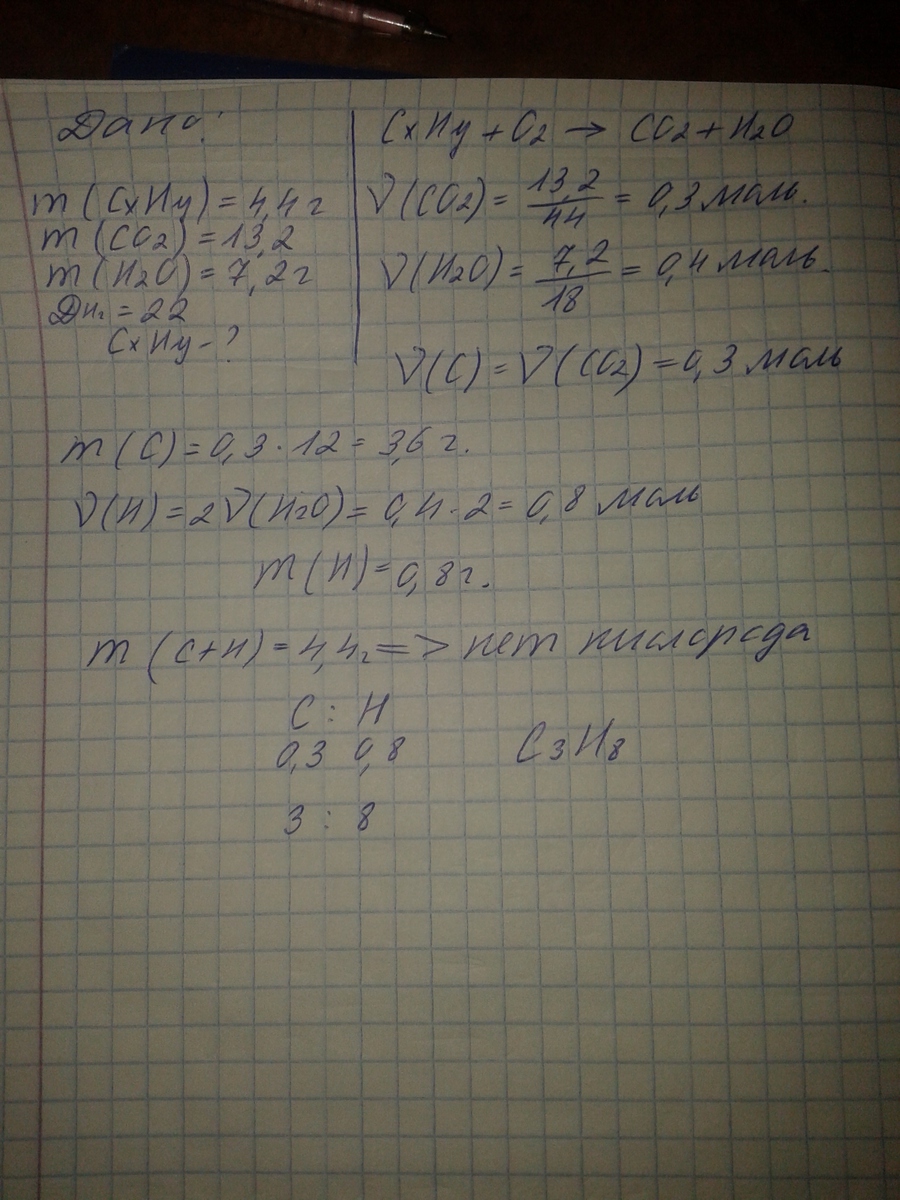 Дано:
m (CxHy) = 4,4 г
m (CO2) = 13,2
m (H2O) = 7,2 г
Dн2 = 22
CxHy - ?
CxHy + O2 → CO2 + H2O
ν (CO2) = 13,2/44 = 0,3 моль.
ν (H2O) = 7,2/18 = 0,4 моль.
ν (C) = ν (CO2) = 0,3 моль
m (C) = 0,3 · 12 = 3,6 г.
ν (H) = 2 ν (H2O) = 0,4 · 2 = 0,8 моль
m (H) = 0,8 г.
m (C+H) = 4,4 г => нет кислорода
C : H
0,3 0,8
C3H8
3 : 8